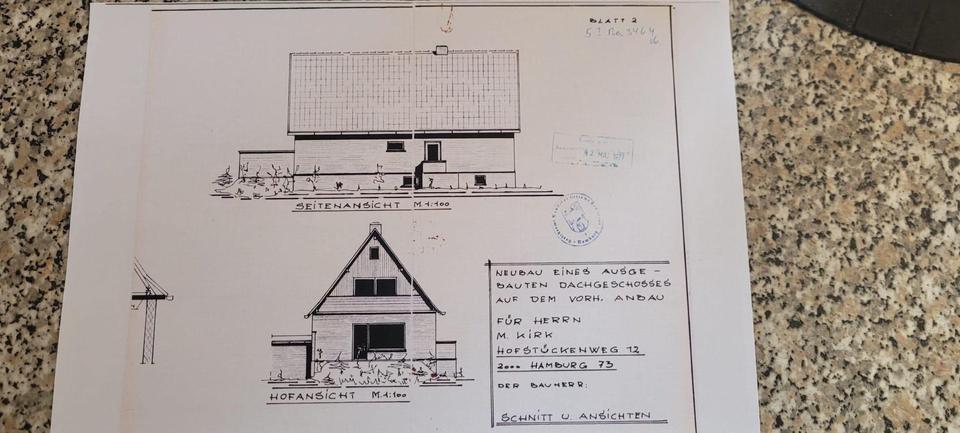 BLATT 2
SEITENANSICHT M. 1:100
HOFANSICHT M. 1:100
NEUBAU EINES AUSGE-
BAUTEN DACHGESCHOSSES
AUF DEM VORH. ANBAU
FÜR HERRN
M. KIRK
HOFSTÜCKENWEG 12
2000 HAMBURG 73
DER BAUHERR:
SCHNITT U. ANSICHTEN